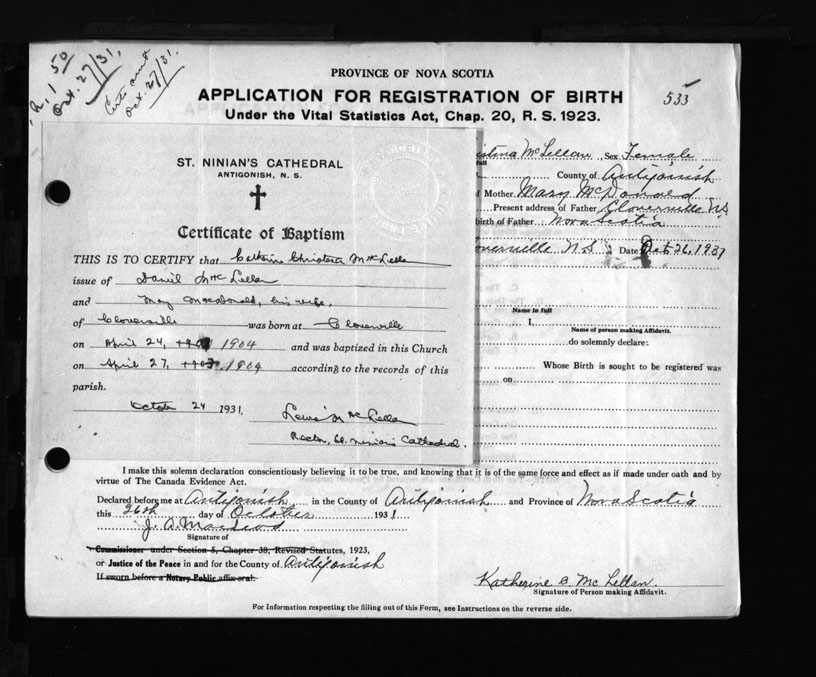 R. 1 50
Oct. 27/31.
Certs sent
Oct. 27/31.
PROVINCE OF NOVA SCOTIA
APPLICATION FOR REGISTRATION OF BIRTH
Under the Vital Statistics Act, Chap. 20, R. S. 1923.
533
istina McLellan, Sex Female
full
County of Antigonish
f Mother Mary McDonald
Present address of Father Cloverville N.S.
birth of Father Nova Scotia
overville N.S Date Oct 26, 1931
Name in full
I,
Name of person making Affidavit.
do solemnly declare:
Whose Birth is sought to be registered was
on
ST. NINIAN'S CATHEDRAL
ANTIGONISH, N. S.
Certificate of Baptism
THIS IS TO CERTIFY that Catherine Christena McLellan
issue of Daniel McLellan
and Mary Macdonald, his wife,
of Cloverville was born at Cloverville
on April 24, 1904 and was baptized in this Church
on April 27, 1904 according to the records of this
parish.
October 24 1931.
Lewis McLellan
Rector, St. Ninian's Cathedral.
I make this solemn declaration conscientiously believing it to be true, and knowing that it is of the same force and effect as if made under oath and by
virtue of The Canada Evidence Act.
Declared before me at Antigonish in the County of Antigonish and Province of Nova Scotia
this 26th day of October 1931
J. A. MacLeod
Signature of
Commissioner under Section 5, Chapter 38, Revised Statutes, 1923,
or Justice of the Peace in and for the County of Antigonish
If sworn before a Notary Public affix seal.
Katherine C. McLellan.
Signature of Person making Affidavit.
For Information respecting the filling out of this Form, see Instructions on the reverse side.